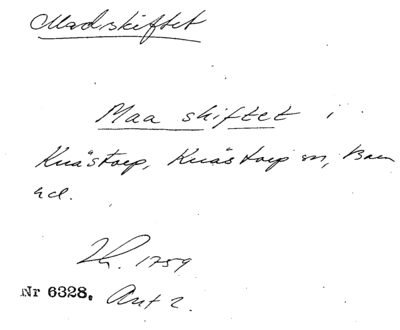 Madskiftet
Maa skiftet i
Knästorp, Knästorp sn, Bara
hd.
Lk. 1759
Nr 6328. Akt 2.